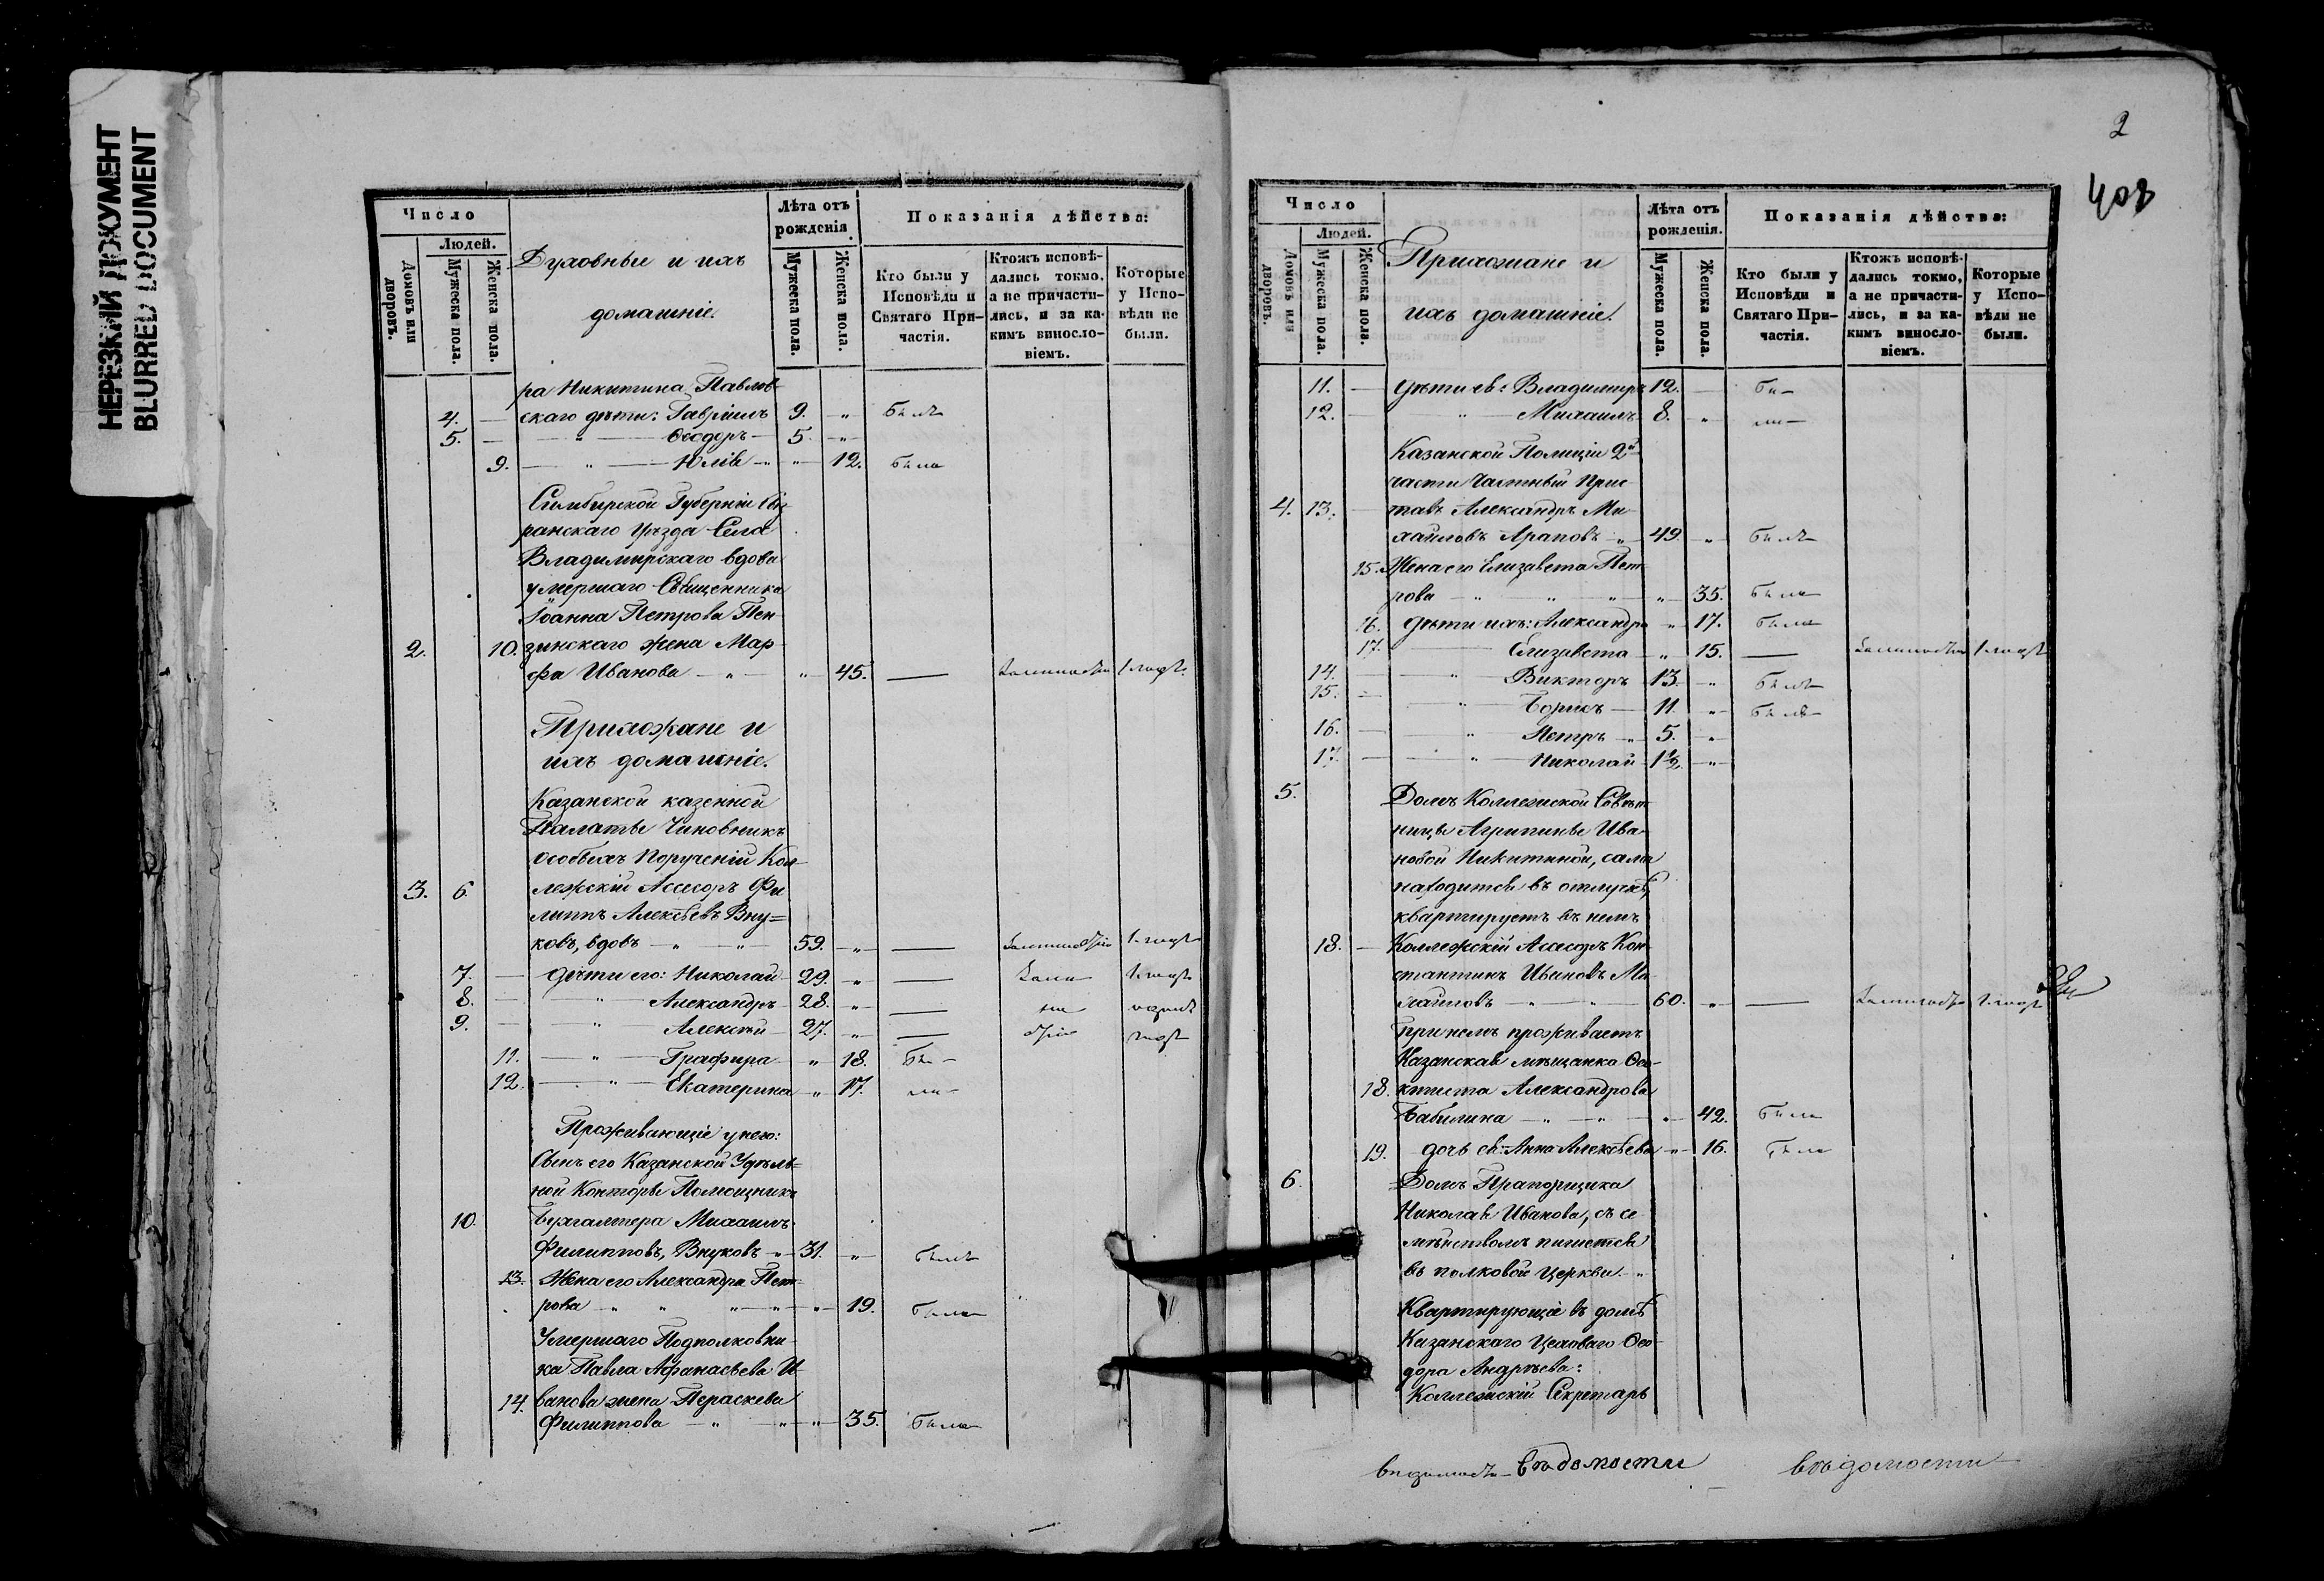 НЕРЕЗКИЙ ДОКУМЕНТ
BLURRED DOCUMENT
Число
Людей.
Домовъ или дворовъ.
Мужеска пола.
Женска пола.
Духовные и ихъ
домашніе.
Лѣта отъ рожденія.
Мужеска пола.
Женска пола.
Показанія дѣйства:
Кто были у Исповѣди и Святаго Причастія.
Ктожъ исповѣдались токмо, а не причастились, и за какимъ винословіемъ.
Которые у Исповѣди не были.
ра Никитина Павлов
4. — скаго дѣти: Гавріилъ 9. „ Былъ
5. — „ — Ѳеодоръ — 5. „
9. — „ — Юлія — „ — 12. Была
Симбирской Губерніи Сыз
ранскаго Уѣзда Села
Владимірскаго вдова
умершаго Священника
Іоанна Петрова Пен-
2. 10. зинскаго жена Мар-
фа Иванова — „ — „ — 45. —
Прихожане и
ихъ домашніе.
Казанской казенной
Палаты Чиновникъ
особыхъ Порученій Кол-
3. 6 лежскій Ассесоръ Фи
липпъ Алексѣевъ Вну=
ковъ, вдовъ — „ — „ — 59. — „ —
7. — дѣти его: Николай — 29. — „ —
8. — „ Александръ — 28. — „ —
9. — „ Алексѣй — 27. — „ —
11. — „ — Графира „ 18. Бы-
12. — „ — Екатерина — „ 17. ли-
Проживающіе у него:
Сынъ его Казанской Удѣль=
ной Конторы Помощникъ
10. Бухгалтера Михаилъ
Филипповъ, Внуковъ — „ — 31. — „ — Былъ
13. Жена его Александра Пет-
рова — „ „ „ — „ — „ — 19. Была
Умершаго Подполковни-
ка Павла Афанасьева И-
14. ванова жена Пераскева
Филиппова — „ — „ — „ — 35. Была
2
408
Число
Людей.
Домовъ или дворовъ.
Мужеска пола.
Женска пола.
Прихожане и
ихъ домашніе.
Лѣта отъ рожденія.
Мужеска пола.
Женска пола.
Показанія дѣйства:
Кто были у Исповѣди и Святаго Причастія.
Ктожъ исповѣдались токмо, а не причастились, и за какимъ винословіемъ.
Которые у Исповѣди не были.
11. — дѣти ея: Владиміръ 12. — Бы-
12. — „ Михаилъ 8. „ ли-
Казанской Полиціи 2й
части Частный Прис
4. 13. тавъ Александръ Ми
хайловъ Араповъ — „ — 49 — „ — Былъ
15. Жена его Елизавета Пет
рова — „ — „ — „ — „ — 35. Была
16. дѣти ихъ: Александра „ 17. Была
17. — Елизавета — „ 15. —
14. — „ — Викторъ 13. „ Былъ
15. — „ — Борисъ — 11. „ Былъ
16. — „ — Петръ — „ 5. „
17. — „ — Николай 1½. „
5. Домъ Коллежской Совѣт
ницы Агрипины Ива-
новой Никитиной, сама
находится въ отлучкѣ,
квартируетъ въ немъ
18. — Коллежскій Ассесоръ Кон-
стантинъ Ивановъ Ми-
хайловъ — „ — „ — 60. — „ —
При немъ проживаетъ
Казанская мѣщанка Ѳео-
18. ктиста Александрова
Бабилина — „ — „ — „ — 42. Была
19. дочь ея: Анна Алексѣева — „ — 16. Была
6. Домъ Прапорщика
Николая Иванова, съ се
мѣйствомъ пишется
въ полковой Церкви. „
Квартирующіе въ домѣ
Казанскаго Цеховаго Ѳео-
дора Андрѣева:
Коллежскій Секретарь
вѣдомости вѣдомости